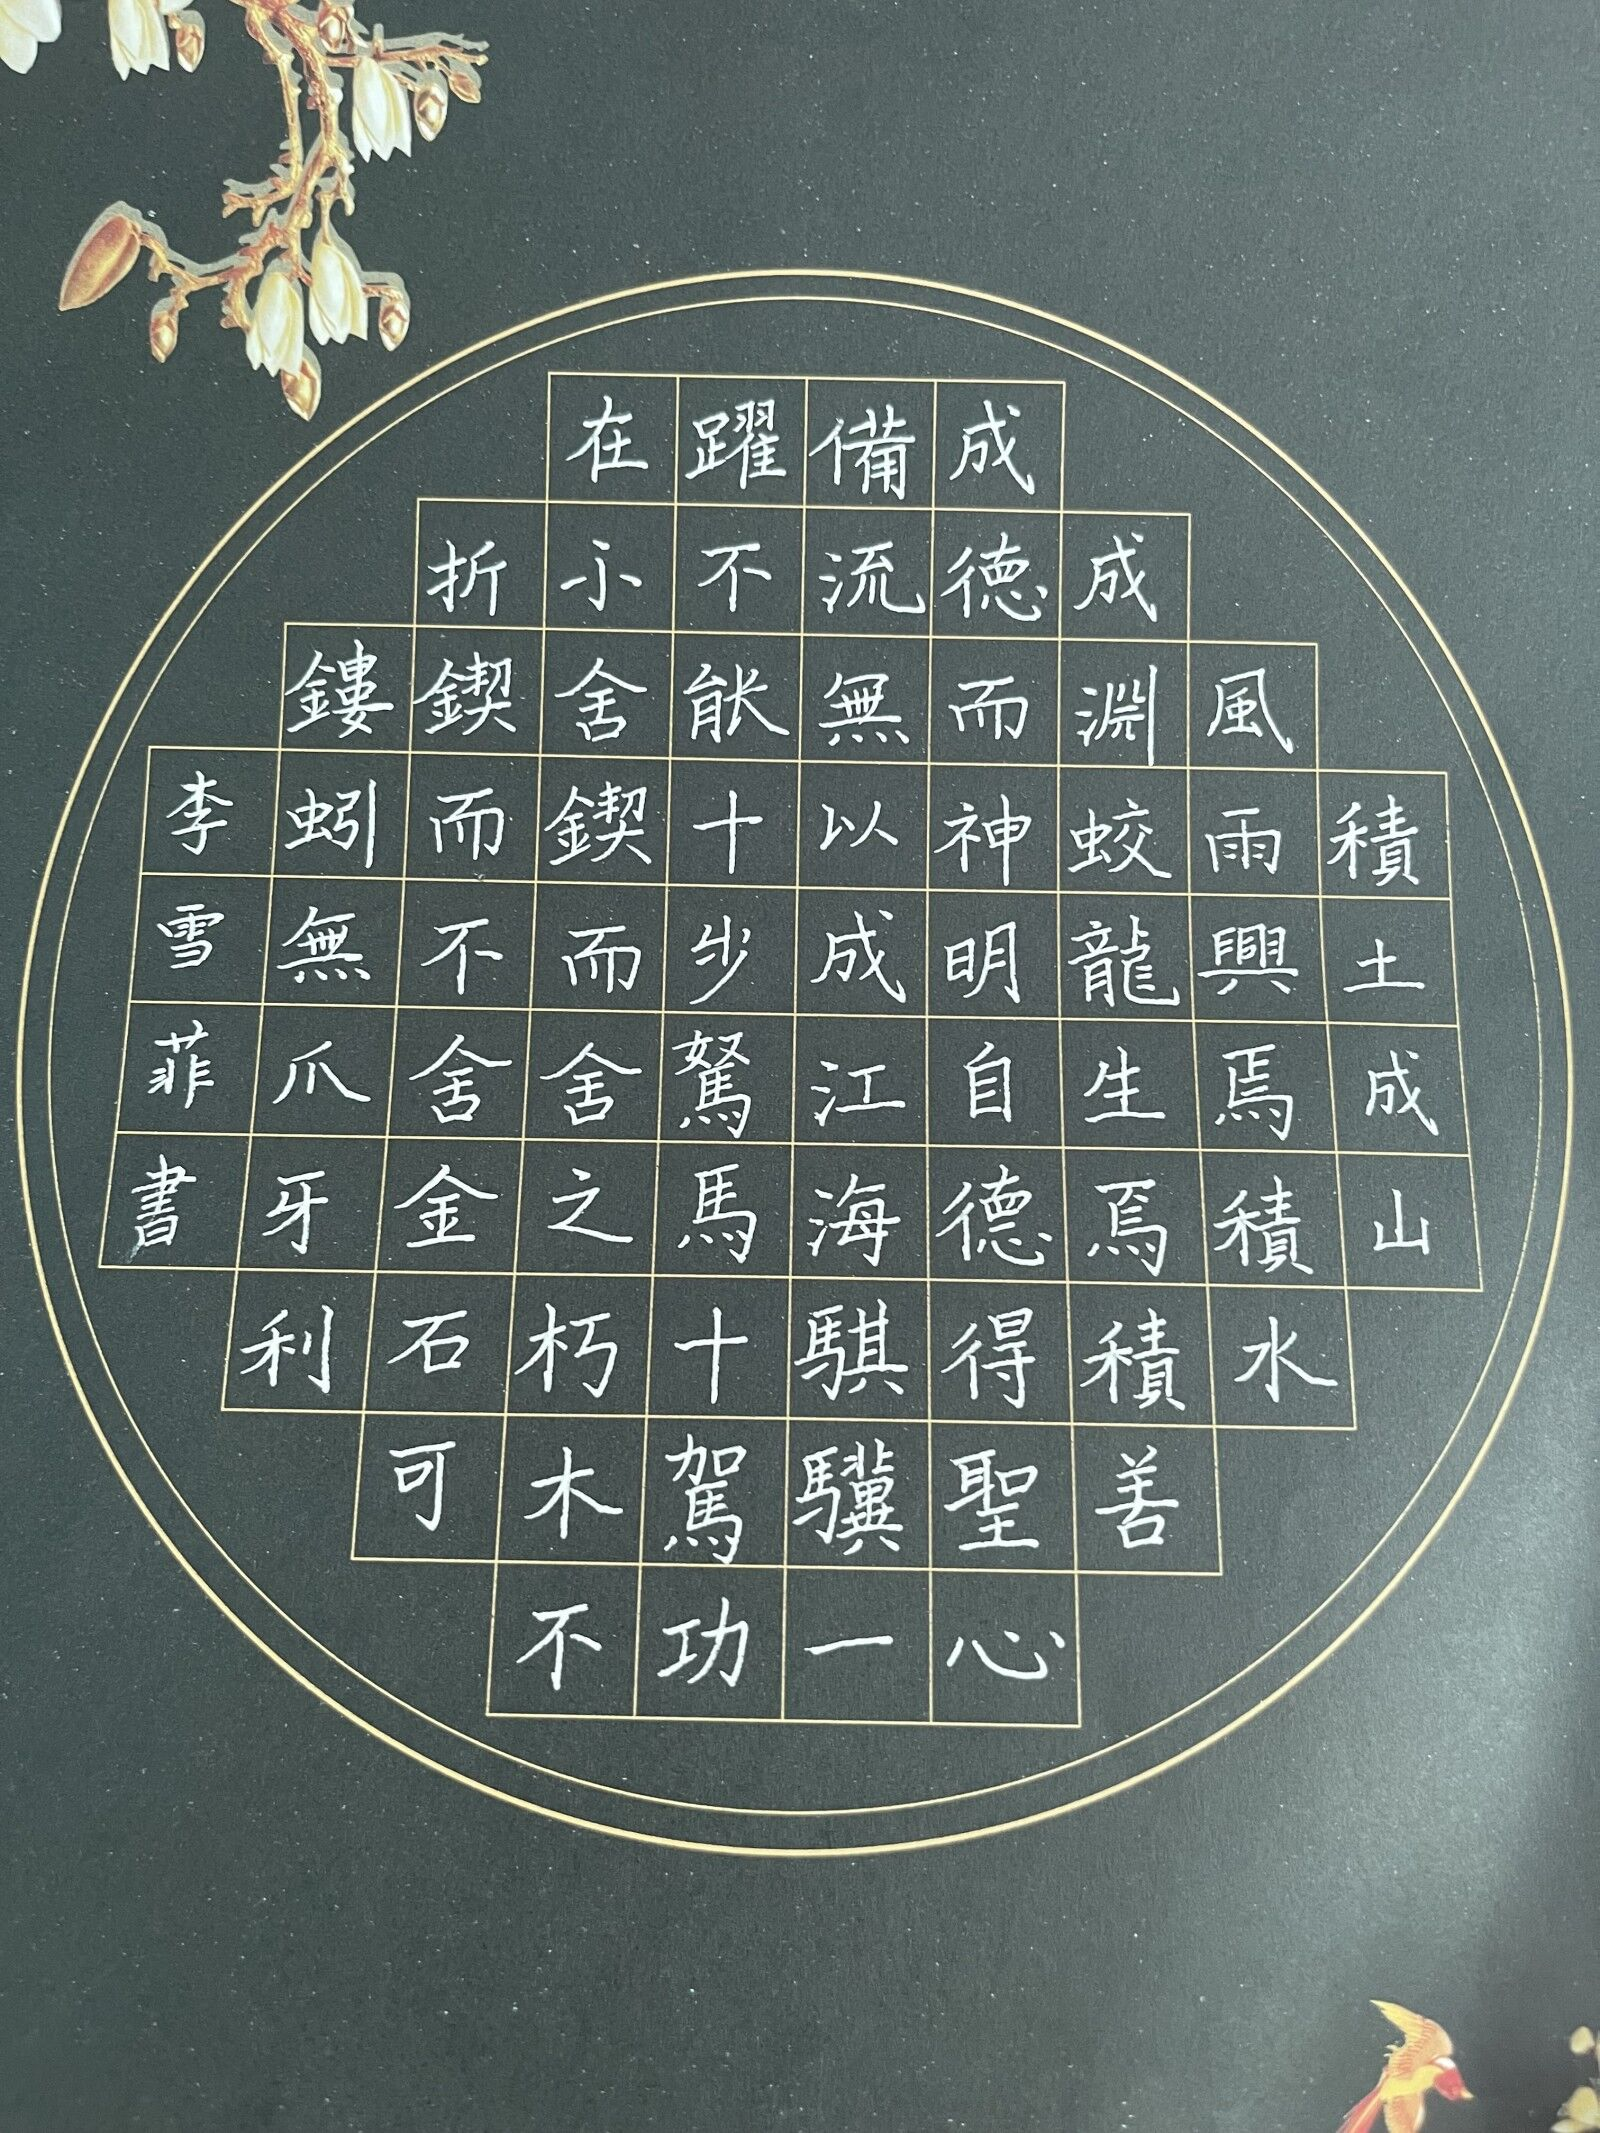 積土成山
風雨興焉積水
成淵蛟龍生焉積善
成德而神明自得聖心
備流無以成江海騏驥一
躍不能十步駑馬十駕功
在小舍鍥而舍之朽木不
折鍥而不舍金石可
鏤蚓無爪牙利
李雪菲書